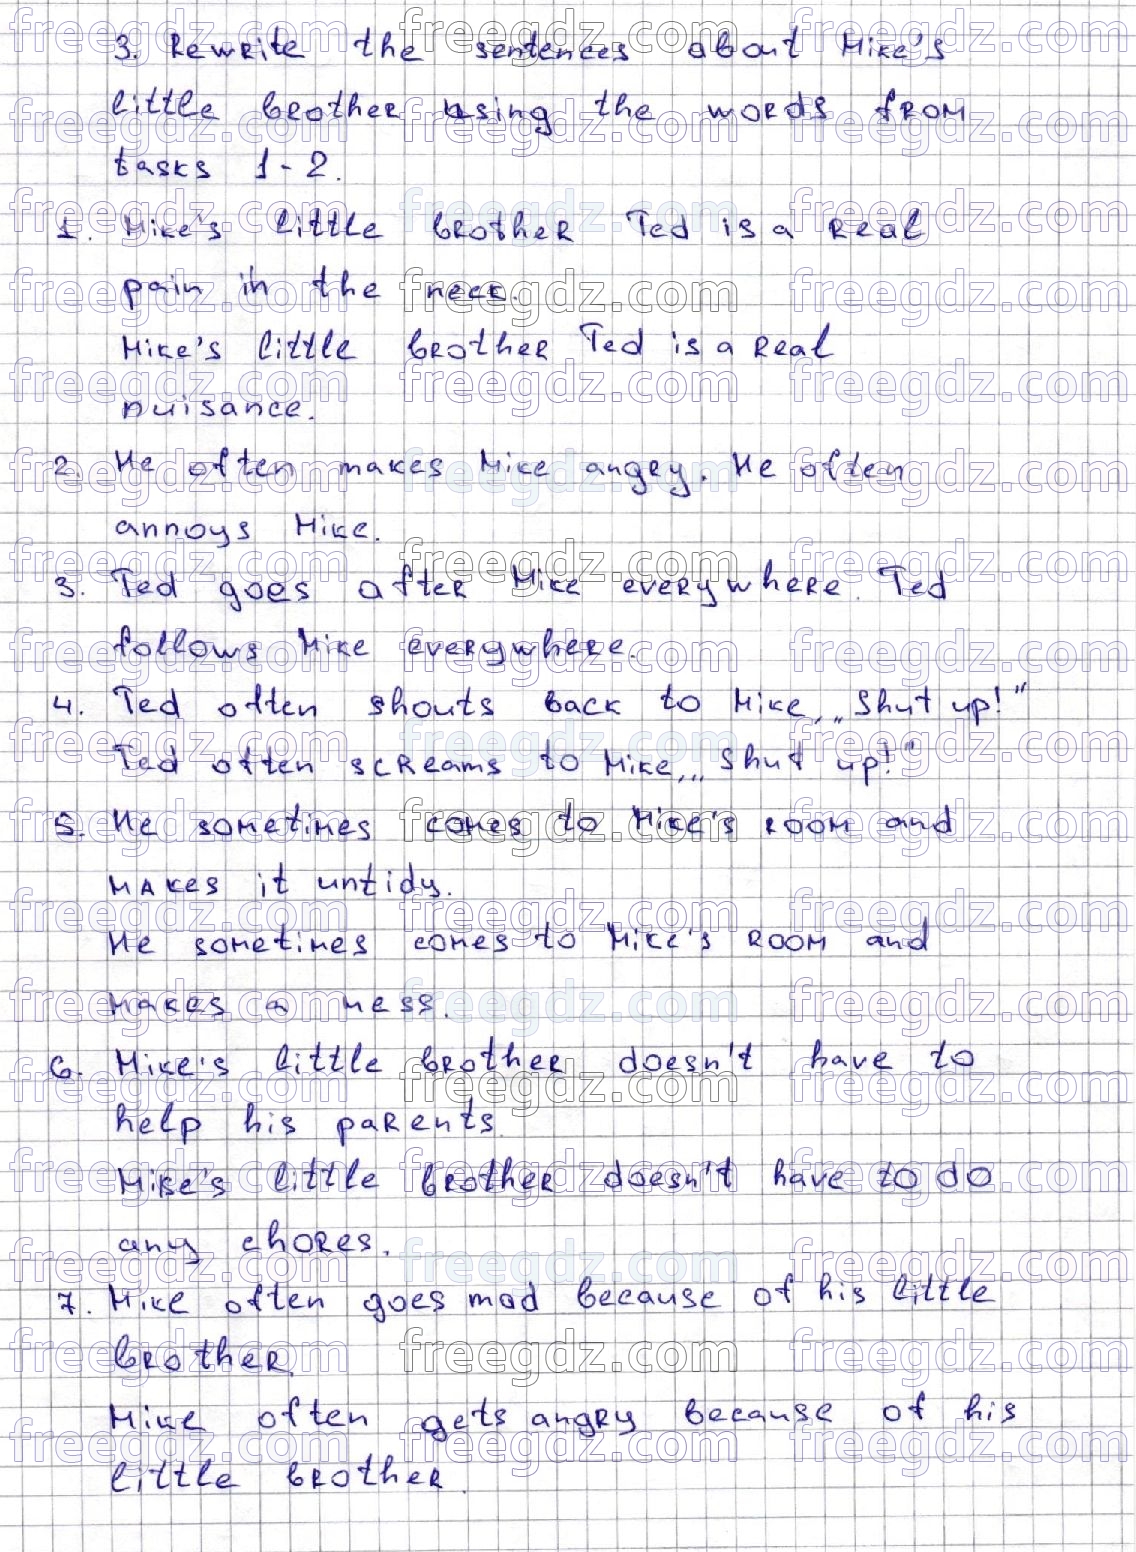 3. Rewrite the sentences about Mike's
little brother using the words from
tasks 1-2.
1. Mike's little brother Ted is a real
pain in the neck.
Mike's little brother Ted is a real
nuisance.
2. He often makes Mike angry. He often
annoys Mike.
3. Ted goes after Mike everywhere. Ted
follows Mike everywhere.
4. Ted often shouts back to Mike, „Shut up!"
Ted often screams to Mike, „Shut up!"
5. He sometimes comes to Mike's room and
makes it untidy.
He sometimes comes to Mike's room and
makes a mess.
6. Mike's little brother doesn't have to
help his parents.
Mike's little brother doesn't have to do
any chores.
7. Mike often goes mad because of his little
brother.
Mike often gets angry because of his
little brother.
freegdz.com